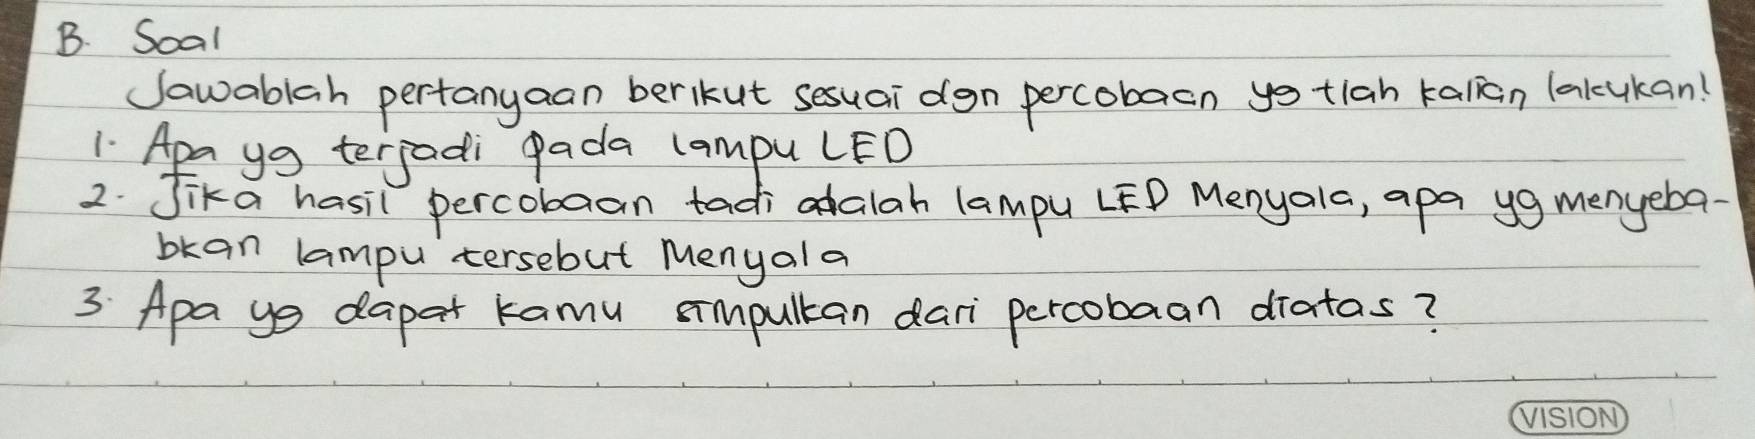 B. Soal
Jawablah pertanyaan berikut sesuai dgn percobaan yg tlah kalian lakukan!
1. Apa yg terjadi pada lampu LED
2. Jika hasil percobaan tadi adalah lampu LED Menyala, apa yg menyeba-
bkan lampu tersebut Menyala
3. Apa yg dapat kamu simpulkan dari percobaan diatas?
VISION